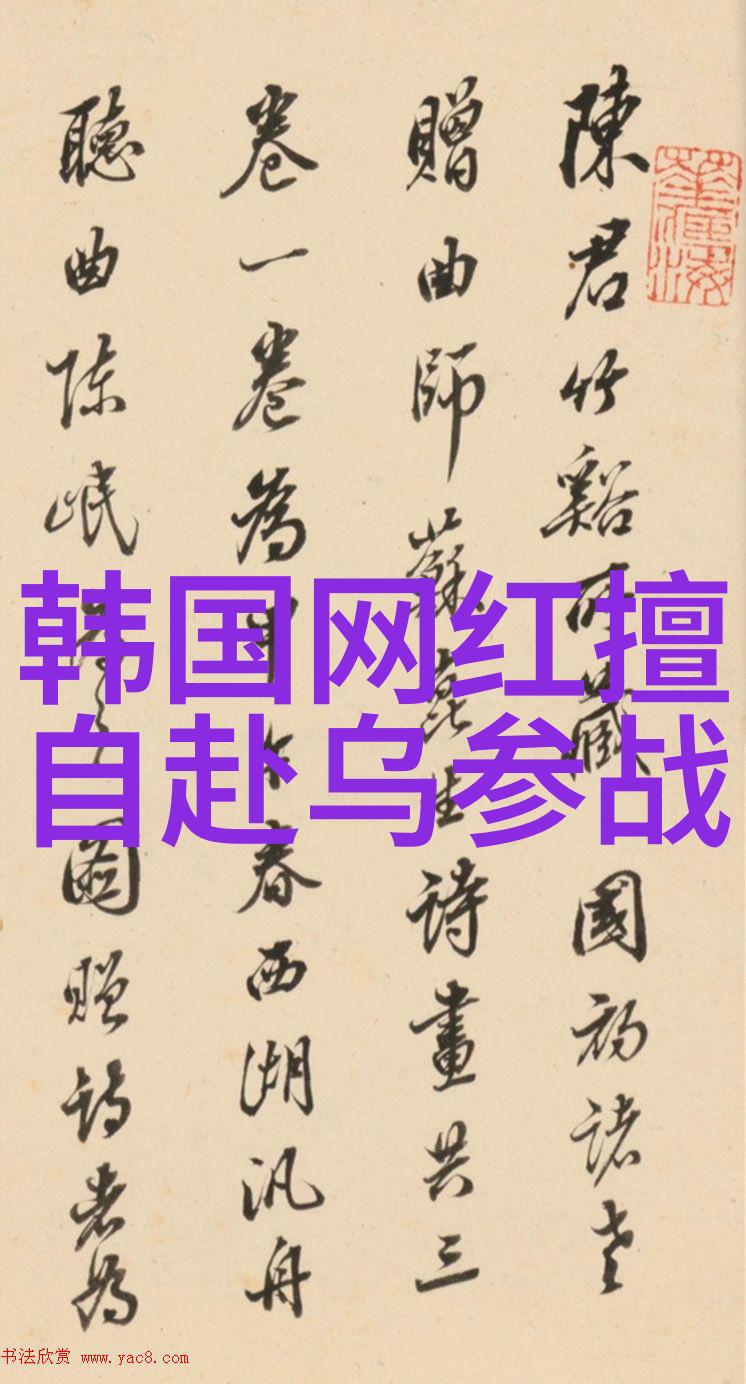 陳君竹谿所藏國初諸老
贈曲師蘇崑生詩畫共三
卷一卷為春西湖汎舟
聽曲陈岷圖贈诗者為
韩国网红擅
自赴乌参战
书法欣赏 www.yac8.com